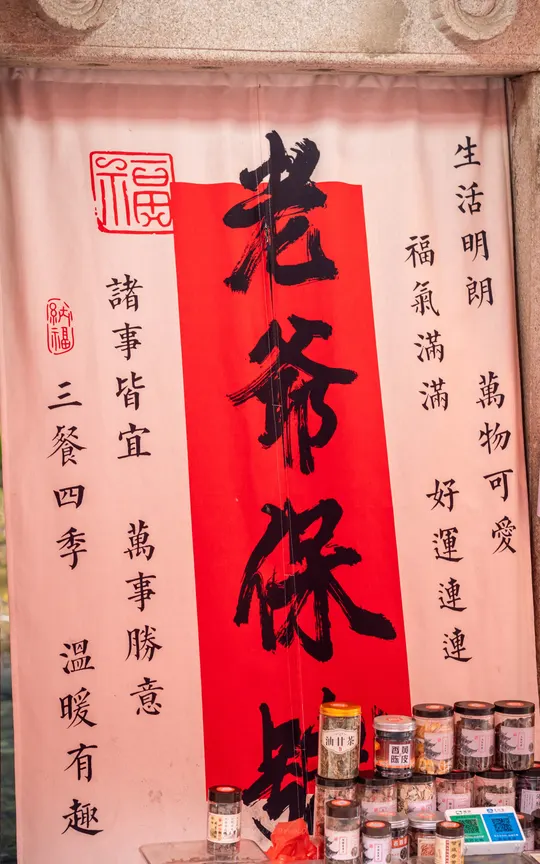 生活明朗 萬物可愛
福氣滿滿 好運連連
老爺保
福
諸事皆宜 萬事勝意
納福
三餐四季 溫暖有趣
油甘茶
陳皮